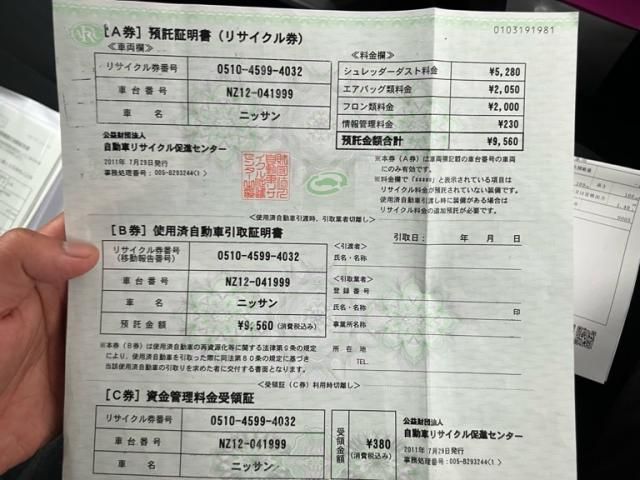 0103191981
[A券] 預託証明書 (リサイクル券)
≪車両欄≫
リサイクル券番号 0510-4599-4032
車台番号 NZ12-041999
車名 ニッサン
≪料金欄≫
シュレッダーダスト料金 ¥5,280
エアバッグ類料金 ¥2,050
フロン類料金 ¥2,000
情報管理料金 ¥230
預託金額合計 ¥9,560
公益財団法人
自動車リサイクル促進センター
2011年 7月29日発行
事務処理番号:005-B293244〈1〉
※本券(A券)は車両欄記載の車台番号の車両
にのみ有効です。
※料金欄で「*****」と表示されている項目は
リサイクル料金が預託されていない装備です。
使用済自動車引渡し時に装備がある場合は
リサイクル料金の追加預託が必要です。
<使用済自動車引渡時、引取業者切離し>
[B券] 使用済自動車引取証明書
引取日: 年 月 日
リサイクル券番号
(移動報告番号) 0510-4599-4032
車台番号 NZ12-041999
車名 ニッサン
預託金額 ¥9,560 (消費税込み)
<引渡者>
氏名・名称
<引取業者>
登録番号
氏名・名称 印
事業所名称
所在地
TEL.
※本券(B券)は使用済自動車の再資源化等に関する法律第9条の規定
により、使用済自動車を引取った際に同法第80条の規定に基づき
当該使用済自動車の引取りを求めた者に交付する書面となります。
<受領証(C券)利用時切離し>
[C券] 資金管理料金受領証
リサイクル券番号 0510-4599-4032
車台番号 NZ12-041999
車名 ニッサン
受領金額 ¥380
(消費税込み)
公益財団法人
自動車リサイクル促進センター
2011年 7月29日発行
事務処理番号:005-B293244〈1〉